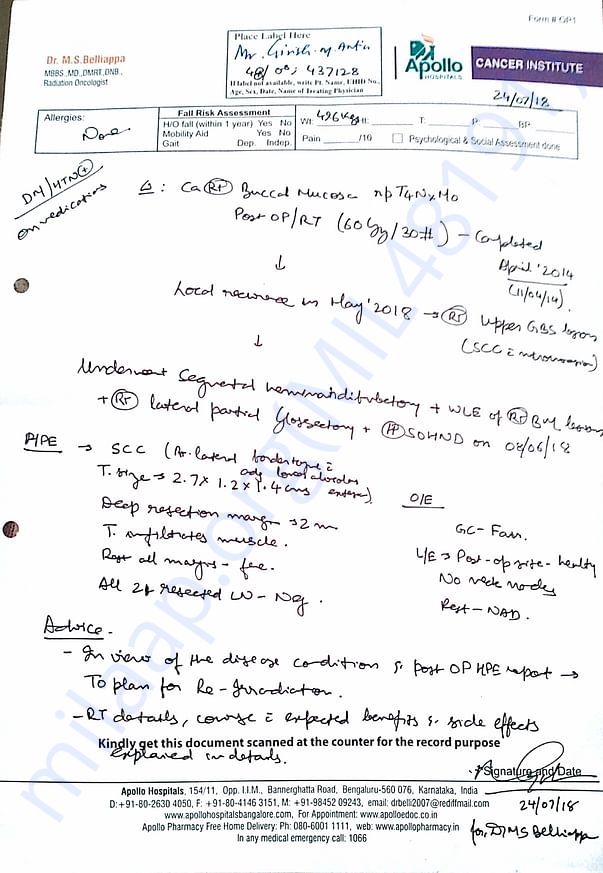 Form # OP1
Dr. M.S.Belliappa
MBBS.,MD.,DMRT.,DNB.,
Radiation Oncologist
Place Label Here
Mr. Girish
48/ 437128
If label not available, write Pt. Name, UHID No.,
Age, Sex, Date, Name of Treating Physician
Apollo
HOSPITALS
CANCER INSTITUTE
24/07/18
Allergies: None
Fall Risk Assessment
H/O fall (within 1 year) Yes No
Mobility Aid Yes No
Gait Dep. Indep.
Wt: Ht: T: P: BP:
Pain /10 Psychological & Social Assessment done
DM/HTN +
on medications
Δ: Ca Rt Buccal Mucosa npT4NxM0
Post OP/RT (60Gy/30#) - Completed
April '2014
(11/04/14).
↓
Local recurrence in May'2018 → Rt Upper GBS lesion
↓
Underwent Segmental hemimandibulectomy + WLE of Rt BM lesion
+ Rt lateral partial Glossectomy + SOHND on 08/06/18
→ SCC
T. size → 2.7 x 1.2 x 1.4 cms
Deep resection margin → 2 m
T. infiltrates muscle.
Rest all margins - free.
All 21 resected LN - Neg.
O/E
GC - Fair.
L/E → Post-op site - healthy
No neck nodes
Rest - NAD.
Advice -
- In view of the disease condition & post OP HPE report →
To plan for Re-Irradiation.
- RT details, course expected benefits & side effects
Kindly get this document scanned at the counter for the record purpose
explained in details.
Signature and Date
24/07/18
for Dr MS Belliappa
Apollo Hospitals, 154/11, Opp. I.I.M., Bannerghatta Road, Bengaluru-560 076, Karnataka, India
D:+91-80-2630 4050, F: +91-80-4146 3151, M: +91-98452 09243, email: drbelli2007@rediffmail.com
www.apollohospitalsbangalore.com, For Appointment: www.apolloedoc.co.in
Apollo Pharmacy Free Home Delivery: Ph: 080-6001 1111, web: www.apollopharmacy.in
In any medical emergency call: 1066